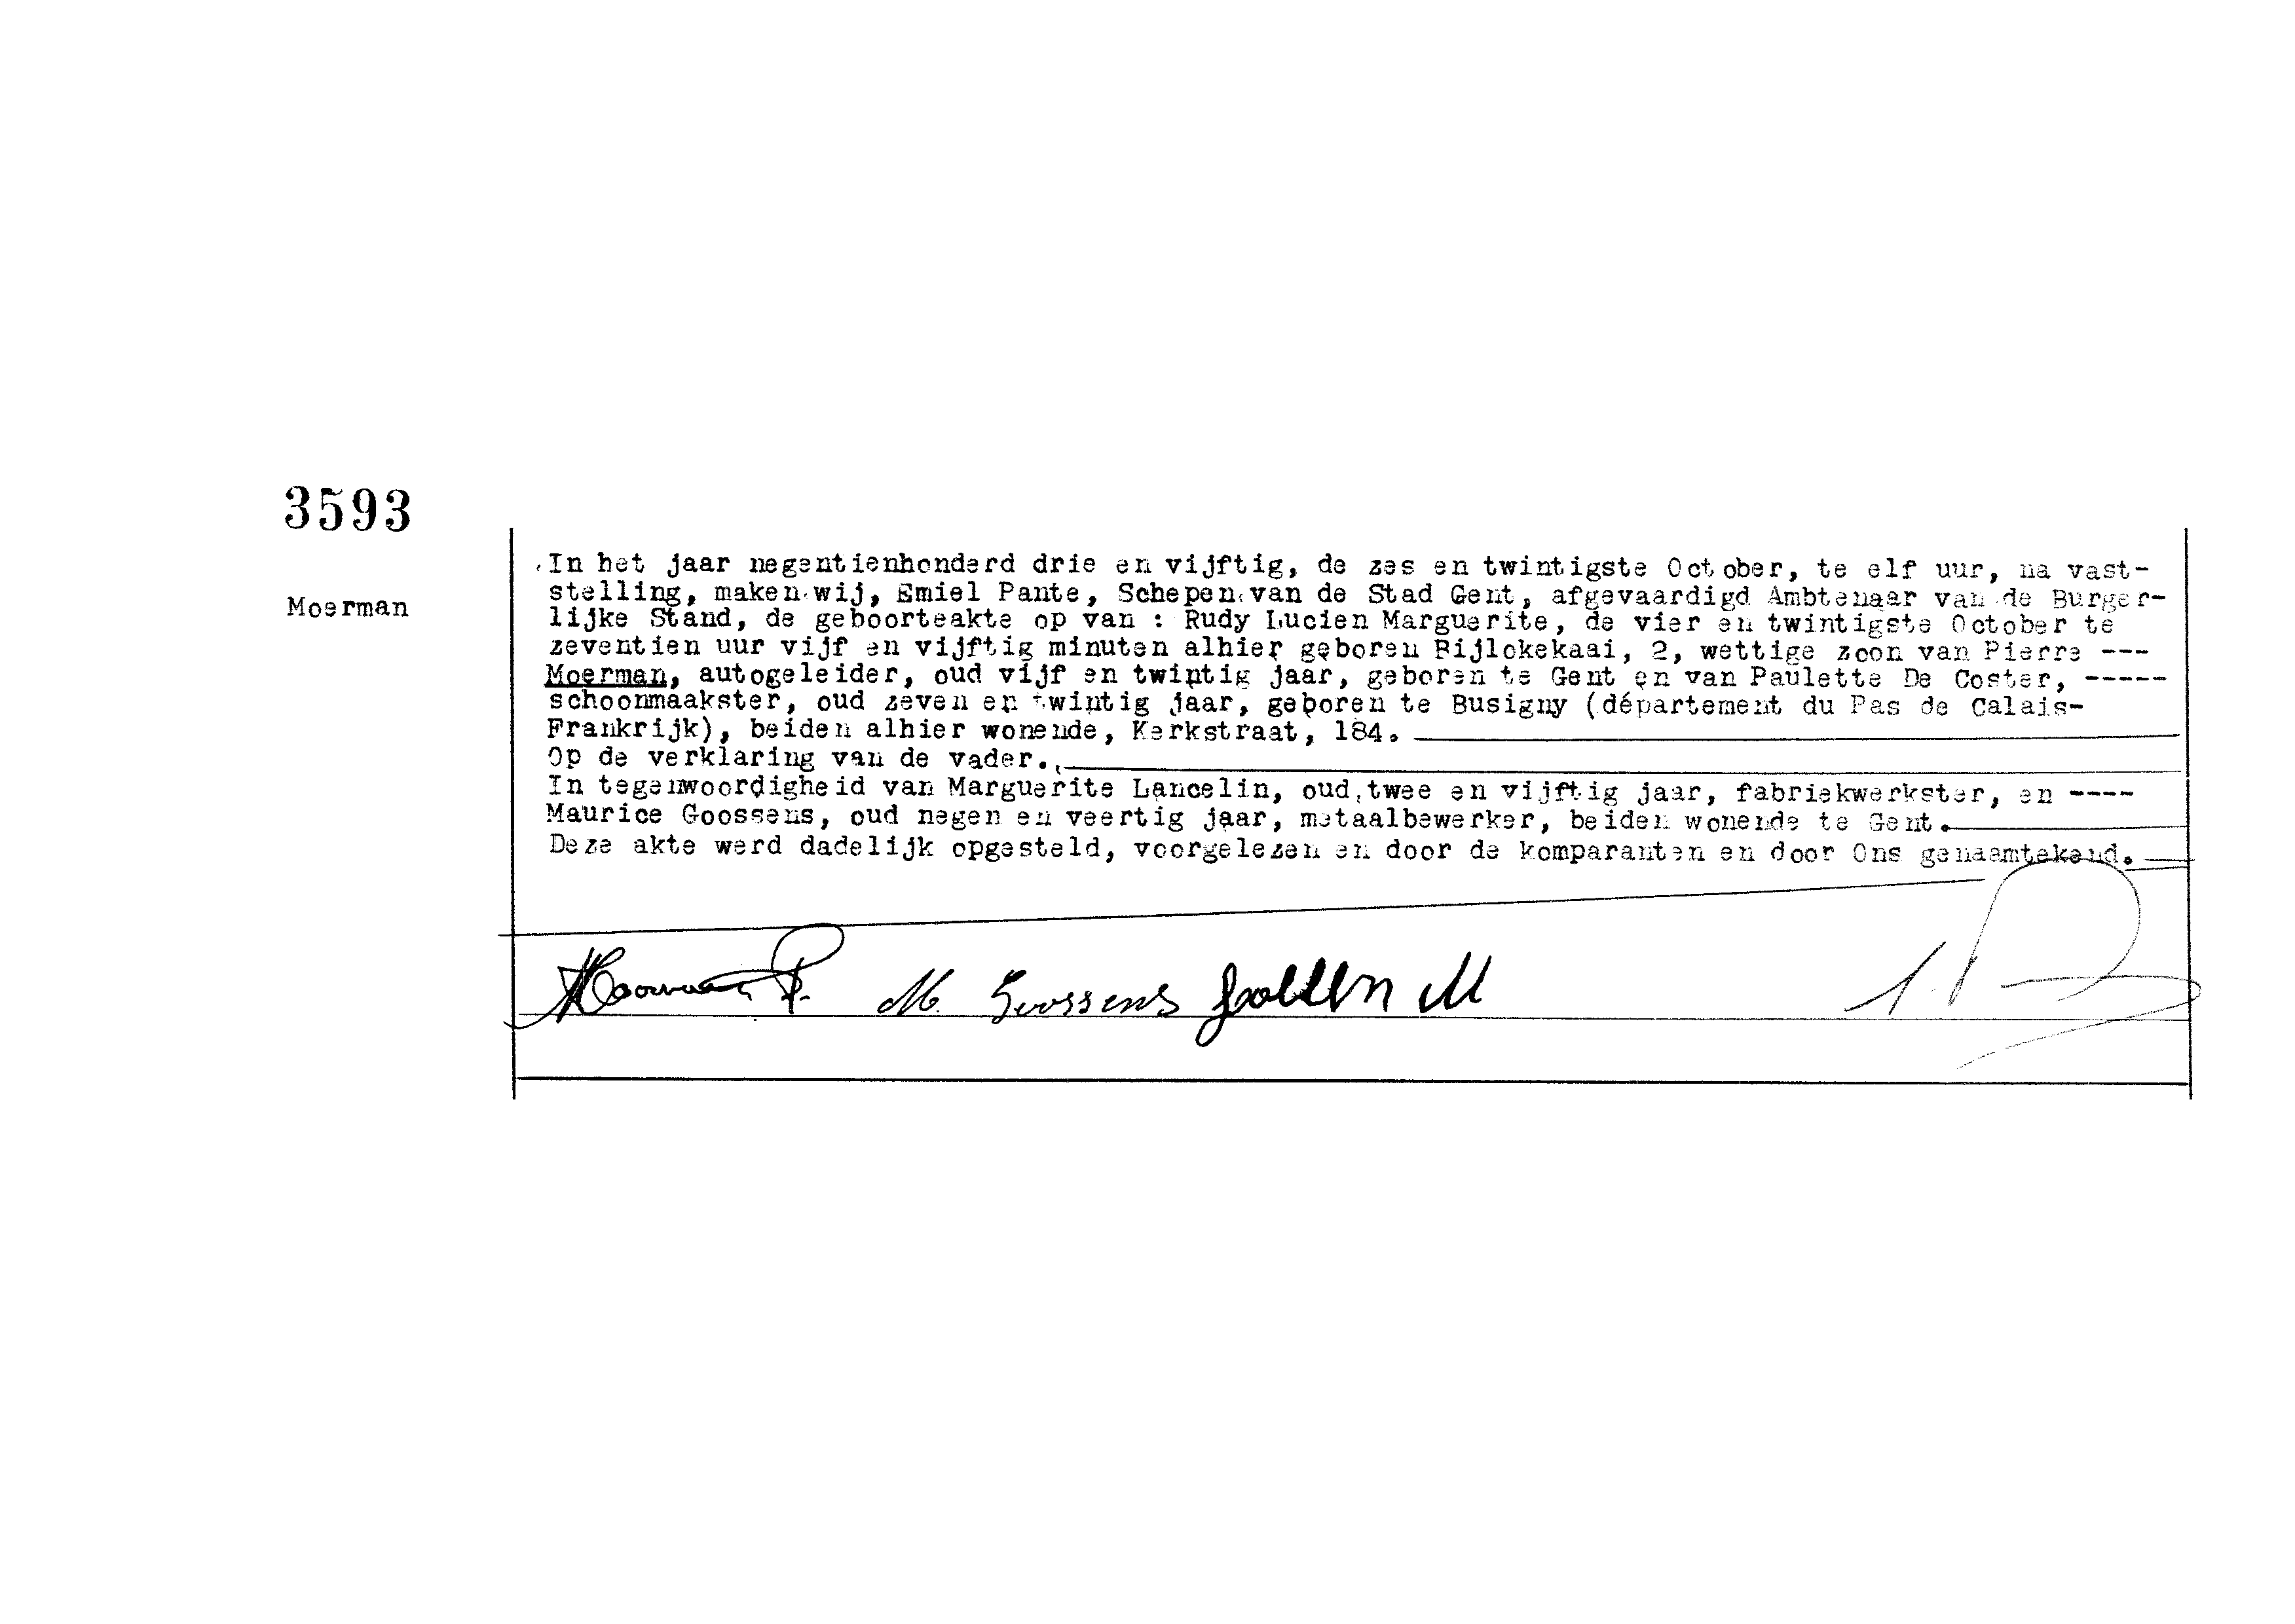 3593
Moerman
In het jaar negentienhonderd drie en vijftig, de zes en twintigste October, te elf uur, na vast-
stelling, maken wij, Emiel Pante, Schepen van de Stad Gent, afgevaardigd Ambtenaar van de Burger-
lijke Stand, de geboorteakte op van : Rudy Lucien Marguerite, de vier en twintigste October te
zeventien uur vijf en vijftig minuten alhier geboren Bijlokekaai, 2, wettige zoon van Pierre ---
Moerman, autogeleider, oud vijf en twintig jaar, geboren te Gent en van Paulette De Coster, -----
schoonmaakster, oud zeven en twintig jaar, geboren te Busigny (département du Pas de Calais-
Frankrijk), beiden alhier wonende, Kerkstraat, 184.
Op de verklaring van de vader.
In tegenwoordigheid van Marguerite Lancelin, oud twee en vijftig jaar, fabriekwerkster, en ----
Maurice Goossens, oud negen en veertig jaar, metaalbewerker, beiden wonende te Gent.
Deze akte werd dadelijk opgesteld, voorgelezen en door de komparanten en door Ons genaamtekend.
Moerman P. M. Goossens